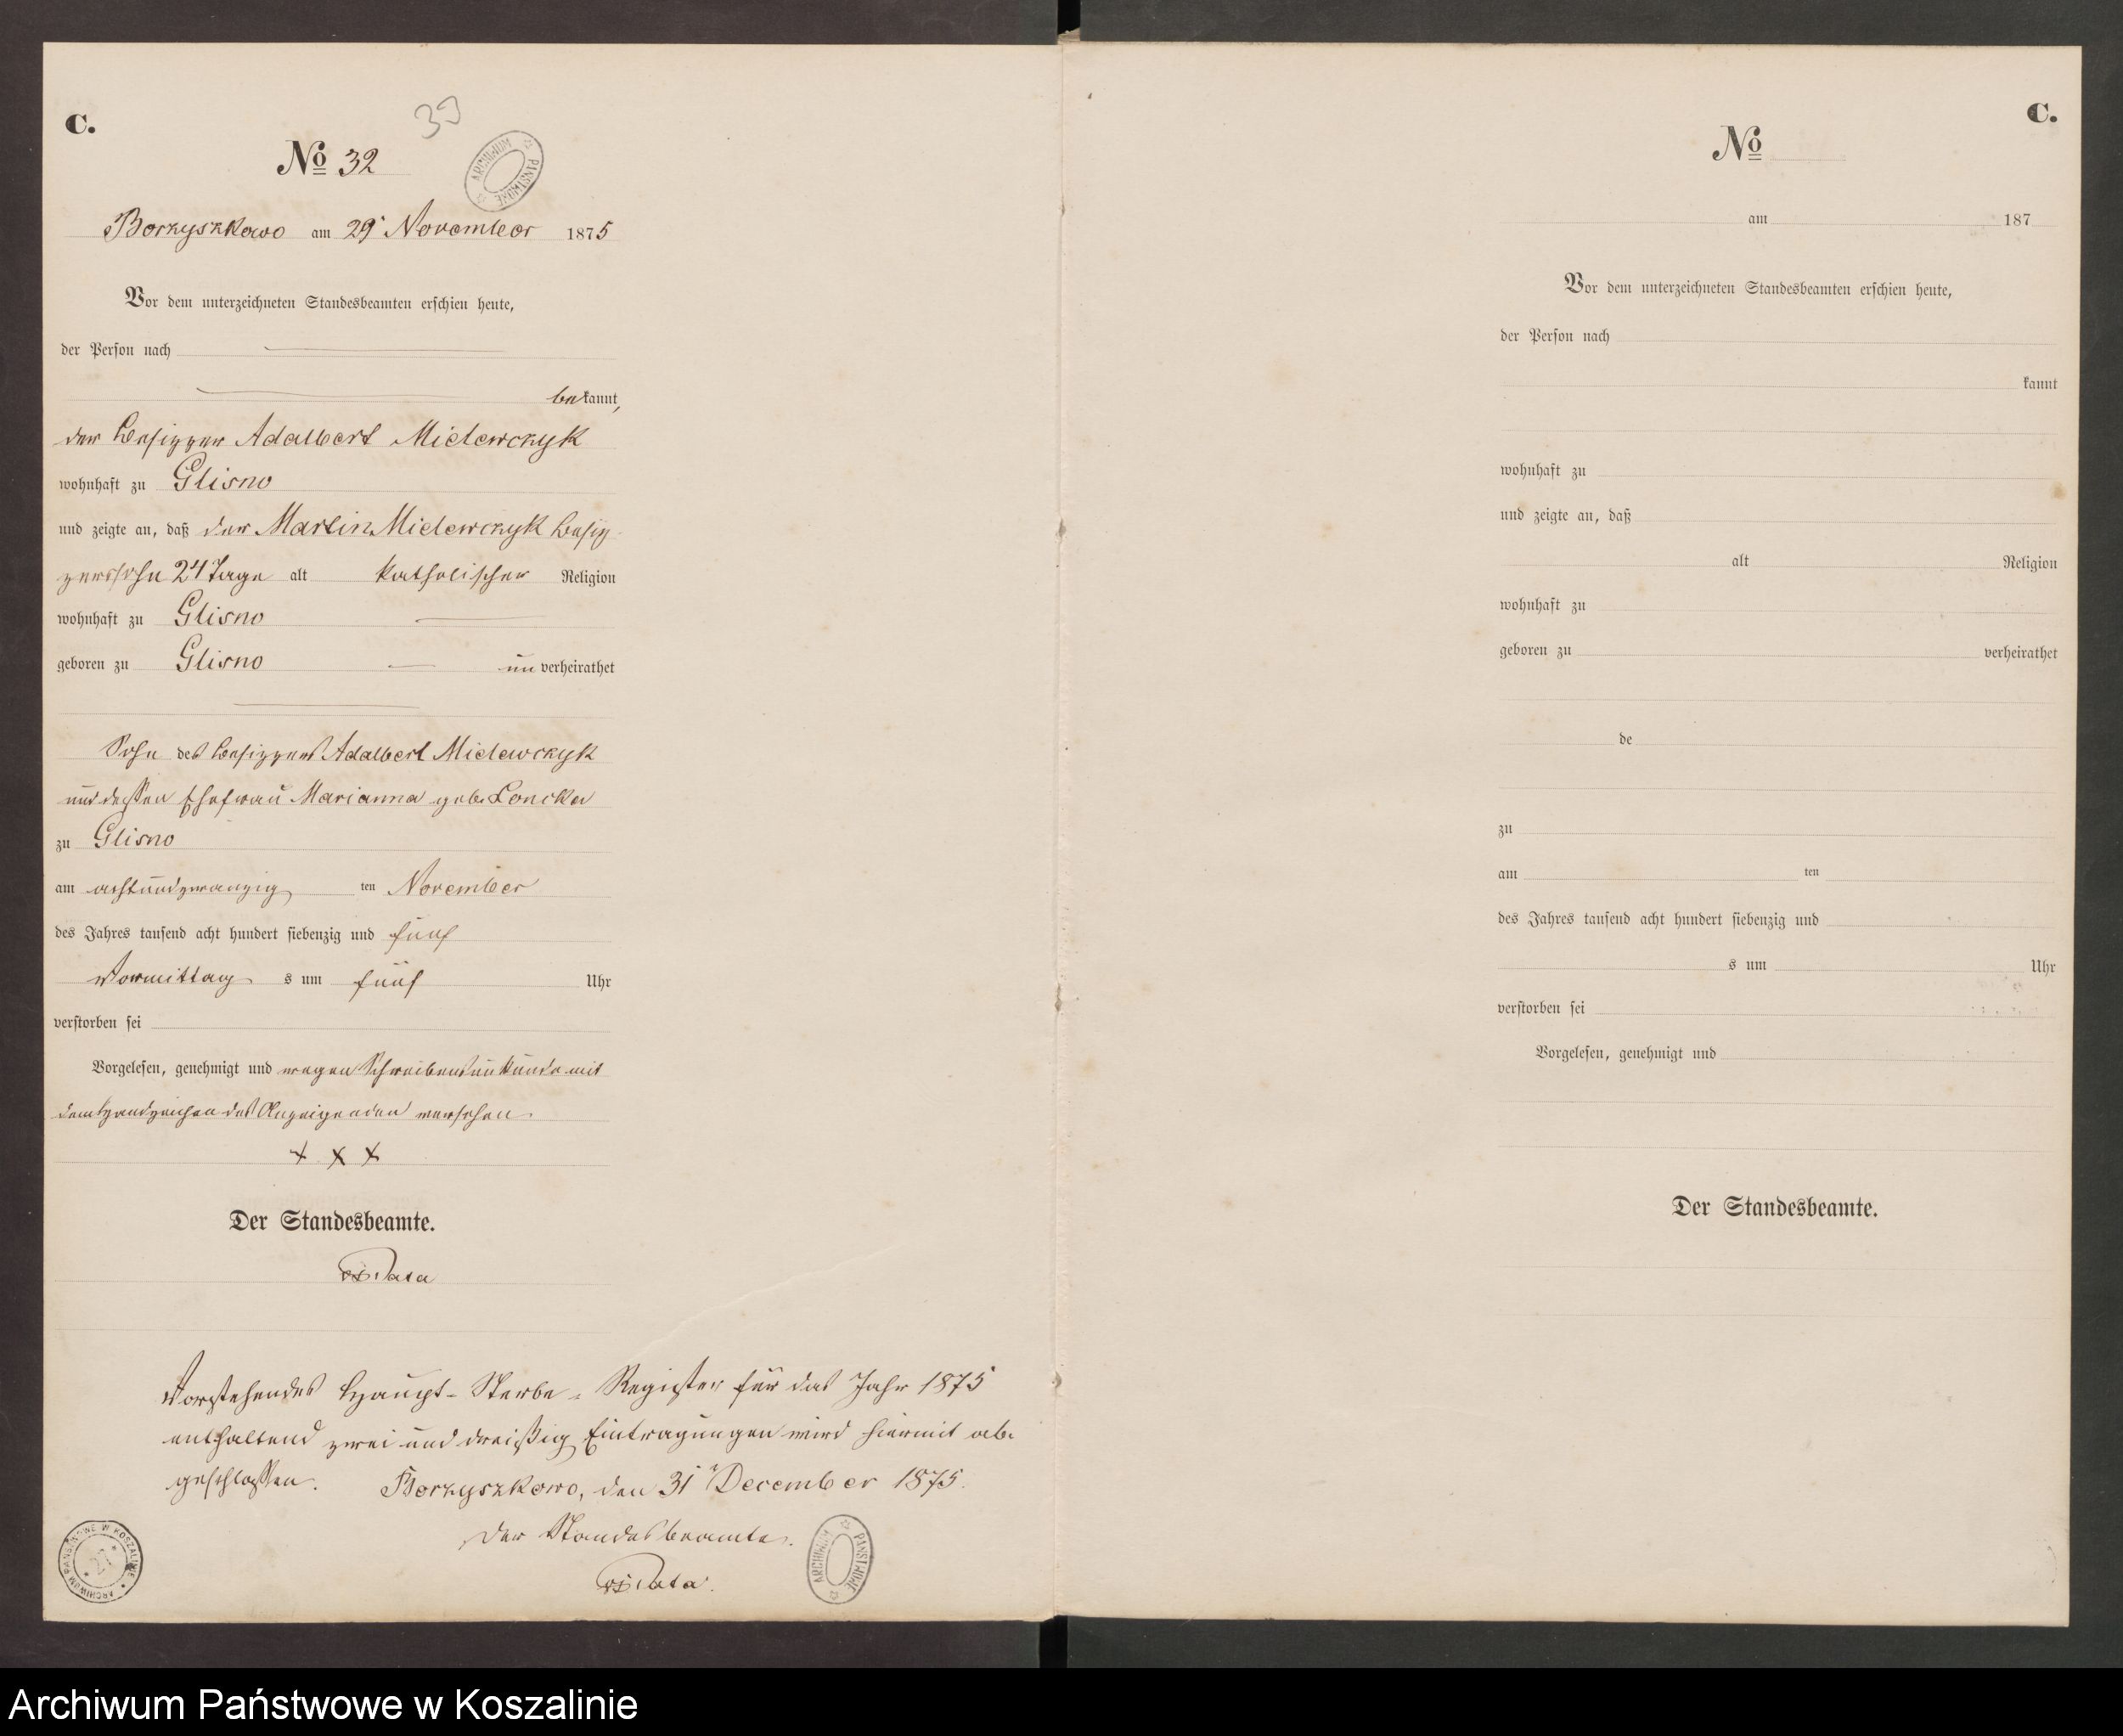 C.
33
No 32
ARCHIWUM PAŃSTWOWE
Borzyszkowo am 29 November 1875
Vor dem unterzeichneten Standesbeamten erschien heute,
der Person nach
bekannt,
der Besitzer Adalbert Mielewczyk
wohnhaft zu Glisno
und zeigte an, daß der Martin Mielewczyk Besit-
zerssohn 24 Tage alt katholischer Religion
wohnhaft zu Glisno
geboren zu Glisno unverheirathet
Sohn des Besitzers Adalbert Mielewczyk
und dessen Ehefrau Marianna geb. Loncka
zu Glisno
am achtundzwanzig ten November
des Jahres tausend acht hundert siebenzig und fünf
Vormittag s um fünf Uhr
verstorben sei
Vorgelesen, genehmigt und wegen Schreibensunkunde mit
dem Handzeichen des Anzeigenden versehen.
+ x x
Der Standesbeamte.
Vorstehendes Haupt-Sterbe-Register für das Jahr 1875
enthaltend zwei und dreißig Eintragungen wird hiermit ab-
geschlossen. Borzyszkowo, den 31 December 1875.
Der Standesbeamte.
ARCHIWUM PAŃSTWOWE W KOSZALINIE
27
ARCHIWUM PAŃSTWOWE
C.
No
am 187
Vor dem unterzeichneten Standesbeamten erschien heute,
der Person nach
kannt
wohnhaft zu
und zeigte an, daß
alt Religion
wohnhaft zu
geboren zu verheirathet
de
zu
am ten
des Jahres tausend acht hundert siebenzig und
s um Uhr
verstorben sei
Vorgelesen, genehmigt und
Der Standesbeamte.
Archiwum Państwowe w Koszalinie